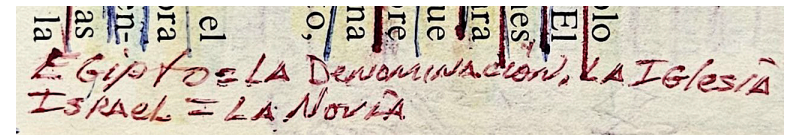 la
as
en-
ora
el
to,
na
re
ue
ura
es
El
olo
EGipto = LA DenominAción. LA IGlesiA
ISRAeL = LA NoviA